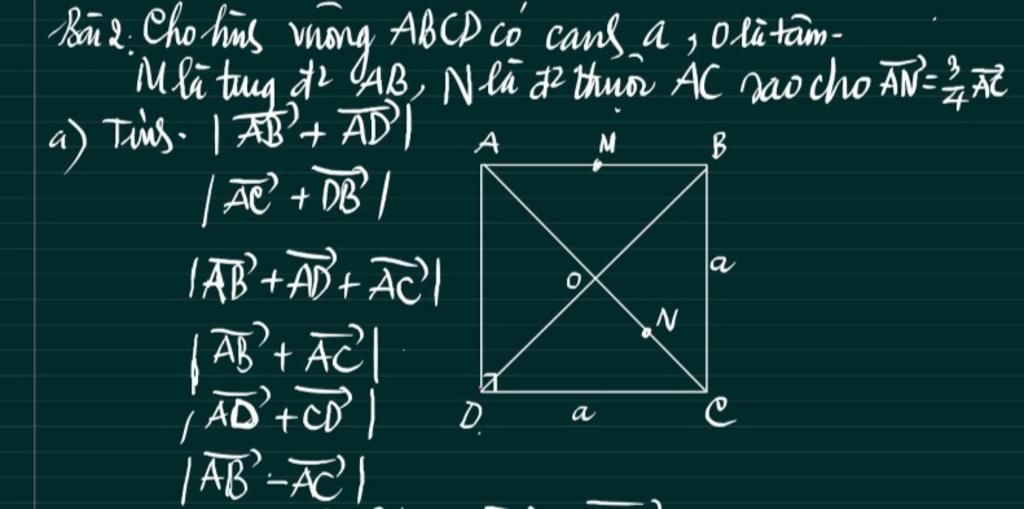 Bài 2: Cho hình vuông ABCD có cạnh a, O là tâm.
M là trung đ² AB, N là đ² thuộc AC sao cho \overrightarrow{AN} = \frac{3}{4} \overrightarrow{AC}
a) Tính. |\overrightarrow{AB} + \overrightarrow{AD}|
|\overrightarrow{AC} + \overrightarrow{DB}|
|\overrightarrow{AB} + \overrightarrow{AD} + \overrightarrow{AC}|
|\overrightarrow{AB} + \overrightarrow{AC}|
|\overrightarrow{AD} + \overrightarrow{CD}|
|\overrightarrow{AB} - \overrightarrow{AC}|
A M B
a
O
N
D. a C